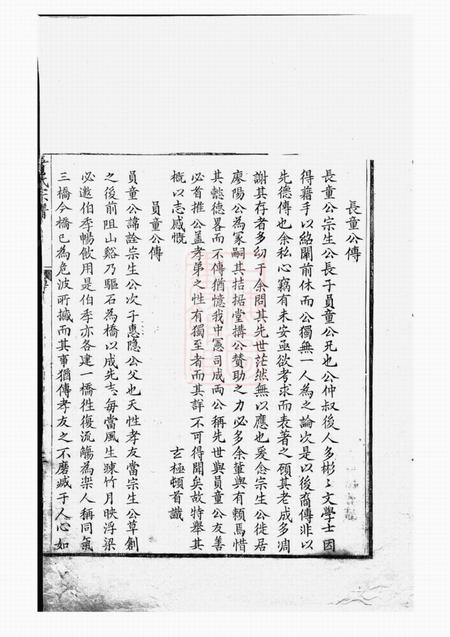 長童公傳
長童公宗生公長子員童公兄也公仲叔後人多彬〻文學士因
得藉手以闡前休而公獨無一人為之論次是以後裔傳非以
先德傳也余私心竊有未安亟欲考求而表著之顧其老成多凋
謝其存者多幼于余問其先世茫然無以應也爰念宗生公徙居
廖陽公為冢嗣其拮据堂搆公贊助之力必多余輩與有賴焉惜
其懿德畧而不傳猶憶我中憲司成兩公稱先世與員童公友善
必首推公蓋孝弟之性有獨至者而其詳不可得聞矣故特舉其
概以志感慨　　玄極頓首識
員童公傳
員童公諱詮宗生公次子惠隱公父也天性孝友當宗生公草創
之後前阻山谿乃驅石為橋以成先志每當風生竦竹月映浮梁
必邀伯季暢飲用是伯季亦各建一橋徃復流觴為楽人稱同氣
三橋今橋已為危波所撼而其事猶傳孝友之不磨烕于人心如
氏宗譜